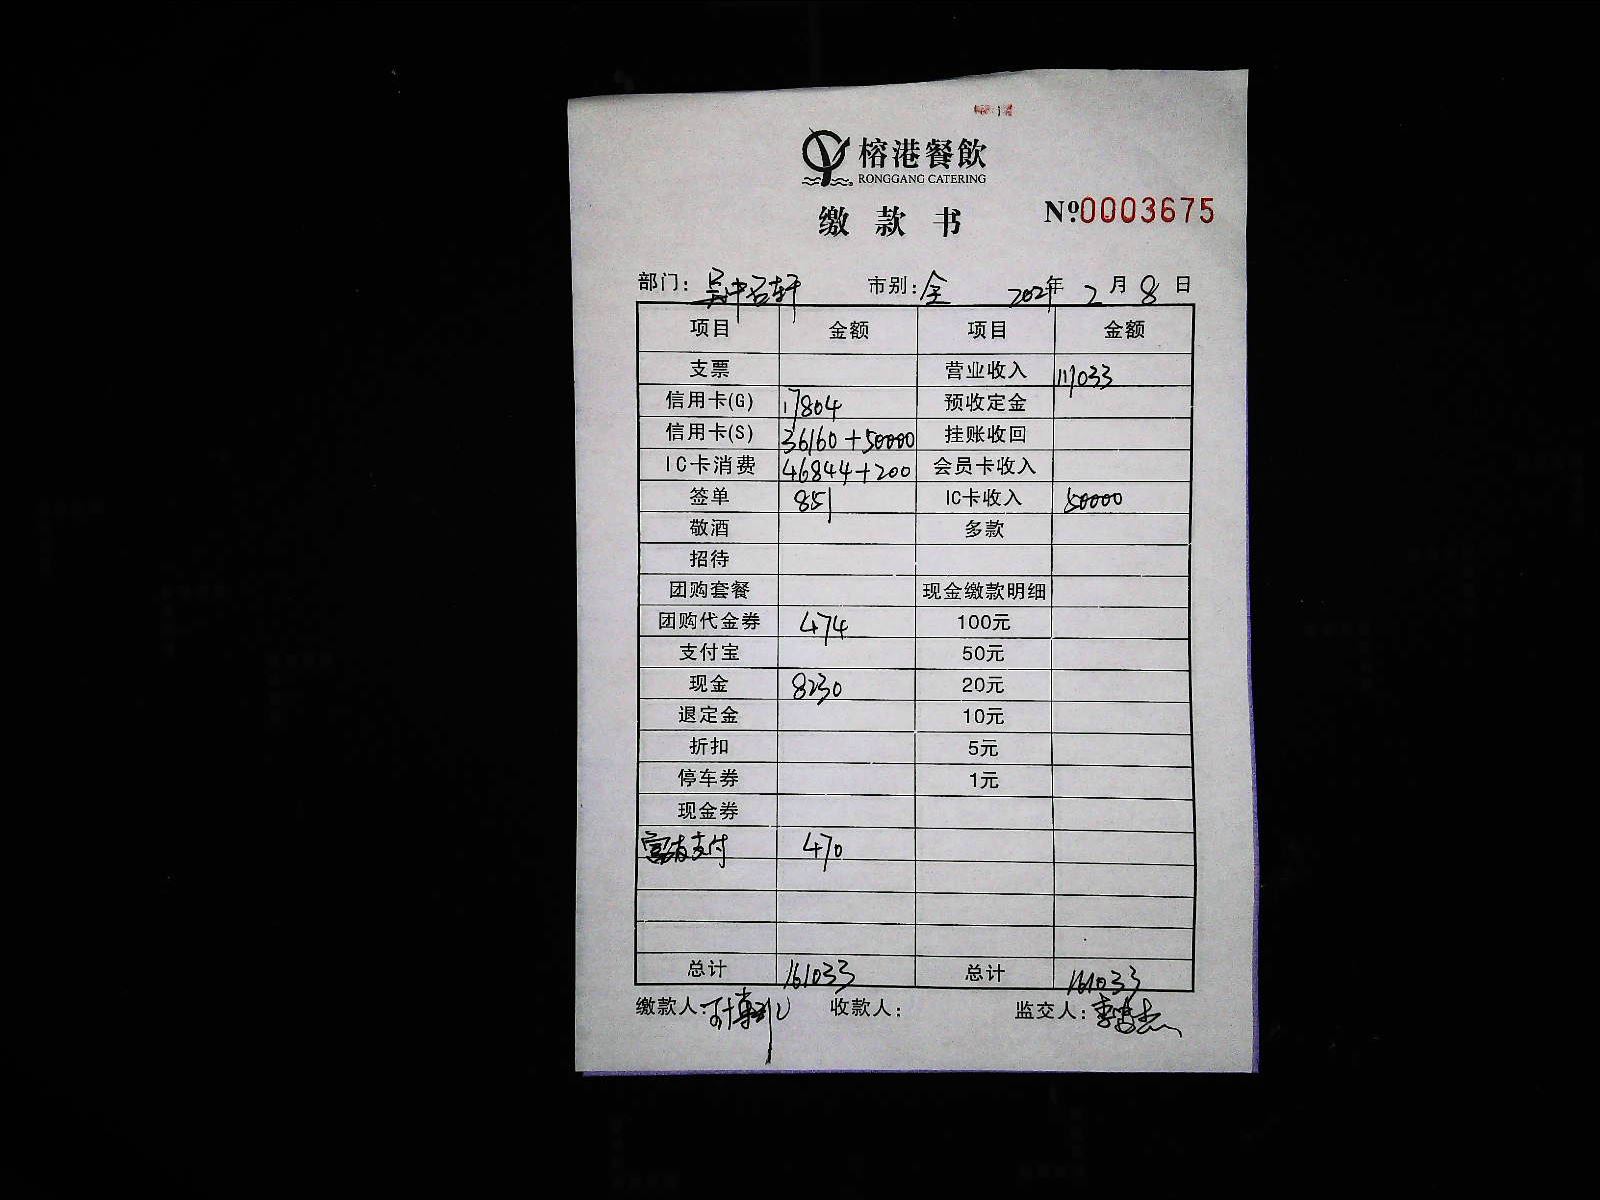 榕港餐飲
RONGGANG CATERING
缴款书 №0003675
部门: 吴中名轩 市别: 全 2021年 2月 8日
项目 金额 项目 金额
支票 营业收入 111033
信用卡(G) 17804 预收定金
信用卡(S) 36160+50000 挂账收回
IC卡消费 46844+200 会员卡收入
签单 851 IC卡收入 50000
敬酒 多款
招待
团购套餐 现金缴款明细
团购代金券 474 100元
支付宝 50元
现金 8230 20元
退定金 10元
折扣 5元
停车券 1元
现金券
富友支付 470
总计 161033 总计 161033
缴款人: 收款人: 监交人: